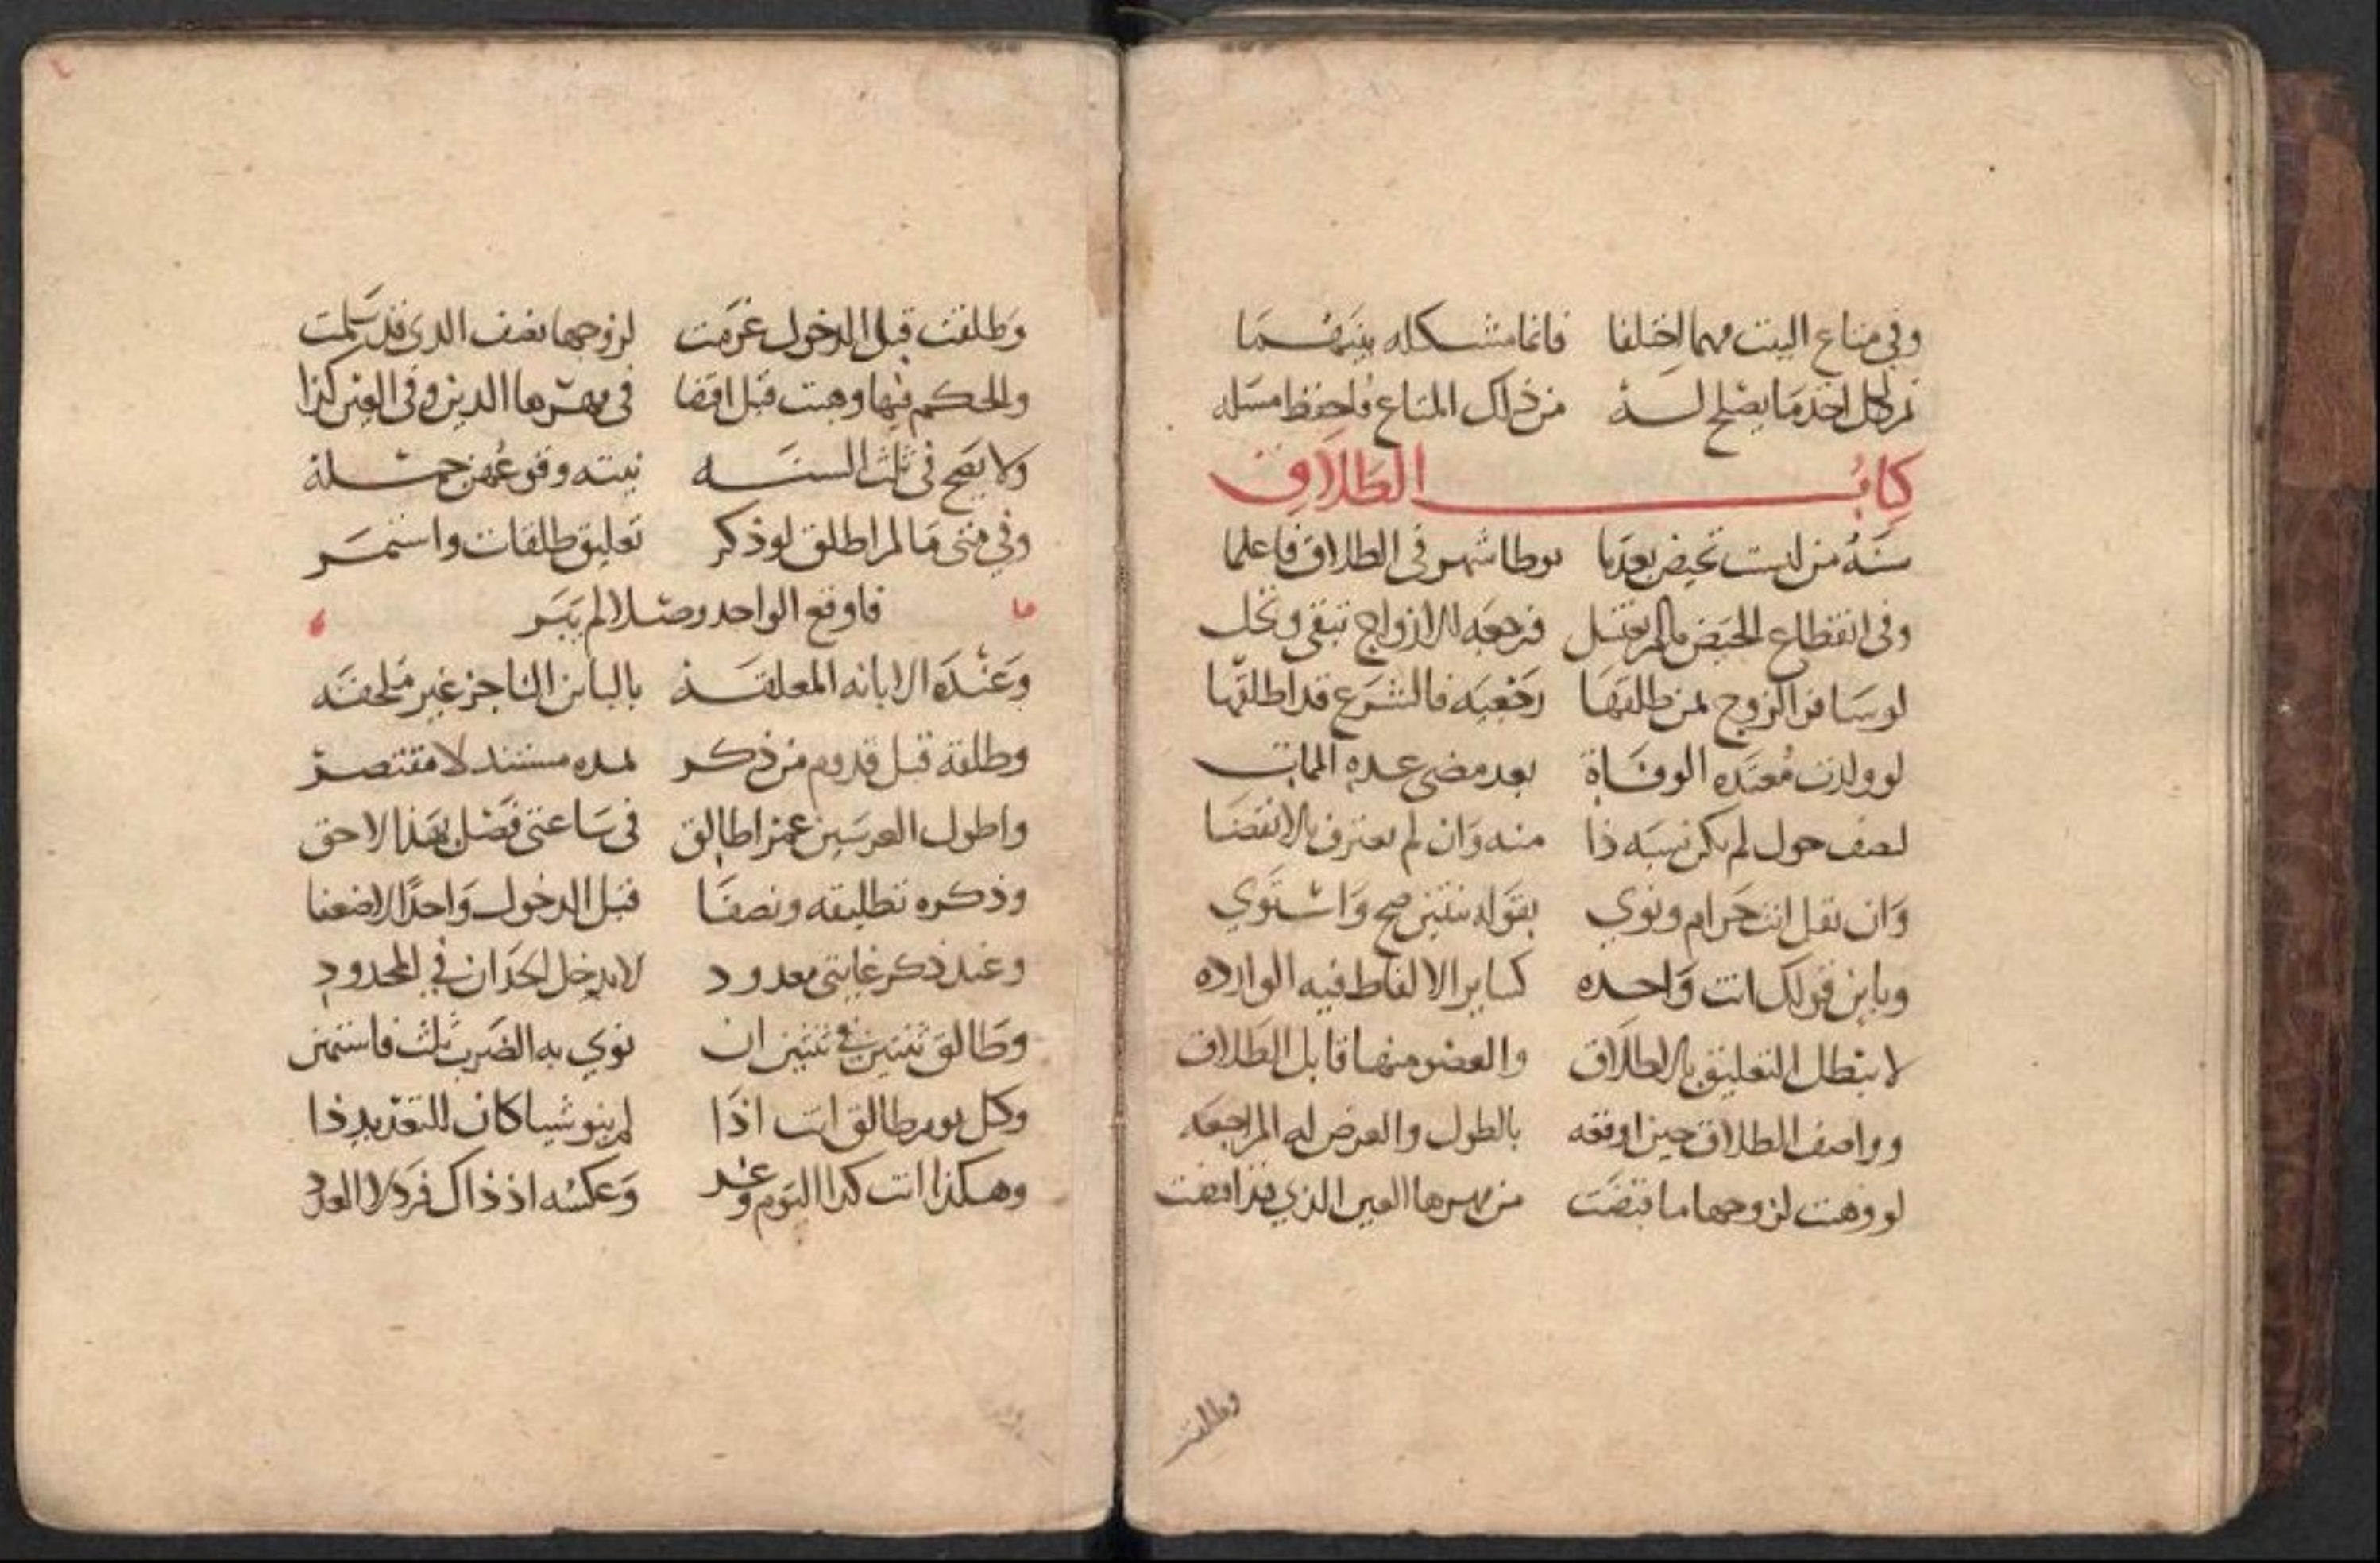 وفي متاع البيت مهما اختلفا فانما مشكله بينهما
ثم لكل احد ما يصلح له من ذلك المتاع فاحفظ مسله
كتاب الطلاق
سنة من ليست تحيض بعدما بوطا شهر في الطلاق فاعلما
وفي انقطاع الحيض ما لم تغتسل فرجعه للازواج تبقى وتحل
لو سافر الزوج بمن طلقها رجعيه فالشرع قد اطلقها
لو ولدت معتده الوفاة بعد مضي عده الممات
لنصف حول لم يكن نسبه ذا منه وان لم تعترف بالانقضا
وان تقل انت حرام ونوي بقوله ثنتين صح واستوي
وباين قولك انت واحده كساير الالفاظ فيه الوارده
لا يبطل التعليق بالطلاق والعضو منها قابل الطلاق
وواصف الطلاق حين اوقعه بالطول والعرض له المراجعه
لو وهبت لزوجها ما قبضت من مهرها العين الذي قد اقبضت
وطلقت
وطلقت قبل الدخول غرمت لزوجها نصف الذي قد سلمت
والحكم فيها وهبت قبل اقبضا في مهرها الدين وفي العين كذا
ولا يصح في ثلث السنه نيته وقوعهن جمله
وفي متى ما لم اطلق لو ذكر تعليق طلقات واستمر
فاوقع الواحد وصلا لم يبر
وعنده الابانه المعلقه بالباين الناجز غير ملحقه
وطلقة قبل قدوم من ذكر لمده مستند لا مقتصر
واطول العرسين عمرا طالق في ساعتي فضل بهذا لاحق
وذكره تطليقه ونصفا قبل الدخول واحدا لا ضعفا
وعند ذكر غايتي معدود لا يدخل الحدان في المحدود
وطالق ثنتين في ثنتين ان نوي به الضرب ثلث فاستمن
وكل يوم طالق انت اذا لم ينو شيا كان للتعديد ذا
وهكذا انت كذا اليوم وغد وعكسه اذ ذاك فرد لا العدد